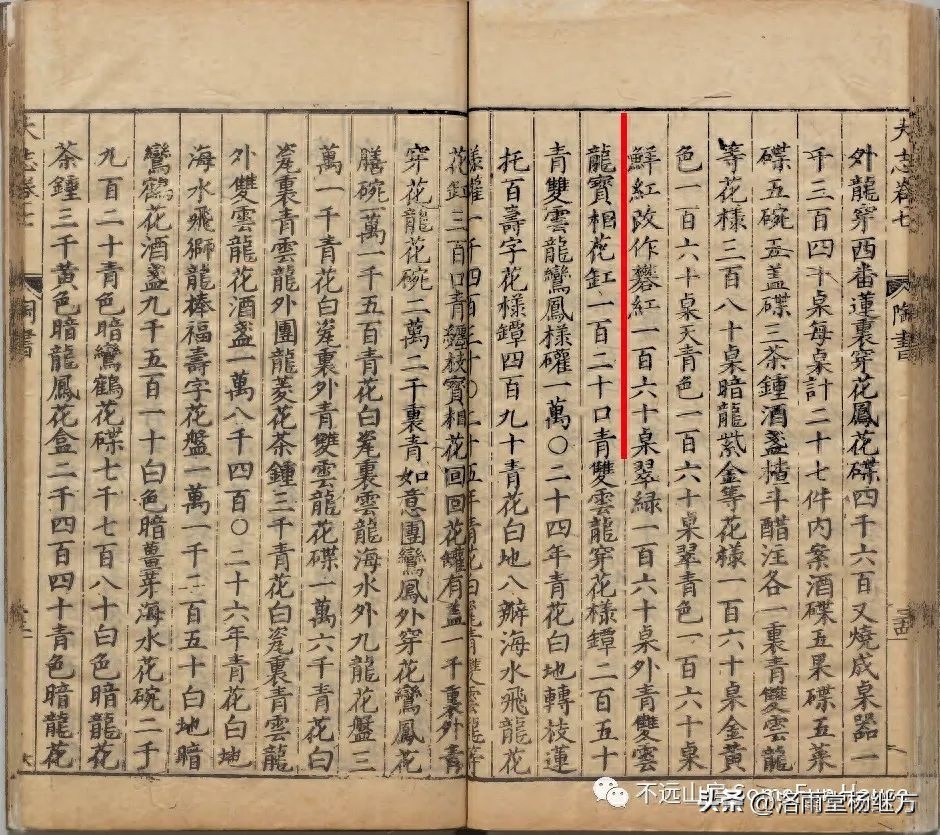 大志卷七
陶書
外龍穿西番蓮裏穿花鳳花碟四千六百又燒成桌器一
千三百四十桌每桌計二十七件內案酒碟五果碟五菜
碟五碗五盖碟三茶鍾酒盞楂斗醋注各一裏青雙雲龍
等花樣三百八十桌暗龍紫金等花樣一百六十桌金黃
色一百六十桌天青色一百六十桌翠青色一百六十桌
鮮紅改作礬紅一百六十桌翠綠一百六十桌外青雙雲
龍寶相花缸一百二十口青雙雲龍穿花樣罈二百五十
青雙雲龍鸞鳳樣礶一萬○二十四年青花白地轉枝蓮
托百壽字花樣罈四百九十青花白地八瓣海水飛龍花
樣礶一千四百二十○二十五年青花白瓷青雙雲龍等
花缸三百口青纏枝寶相花回回花罐有盖一千裏外青
穿花龍花碗二萬二千裏青如意團鸞鳳外穿花鸞鳳花
膳碗一萬一千五百青花白瓷裏雲龍海水外九龍花盤三
萬一千青花白瓷裏外青雙雲龍花碟一萬六千青花白
瓷裏青雲龍外團龍菱花茶鍾三千青花白瓷裏青雲龍
外雙雲龍花酒盞一萬八千四百○二十六年青花白地
海水飛獅龍捧福壽字花盤一萬一千二百五十白地暗
鸞鶴花酒盞九千五百一十白色暗薑芽海水花碗二千
九百二十青色暗鸞鶴花碟七千七百八十白色暗龍花
茶鍾三千黃色暗龍鳳花盒二千四百四十青色暗龍花
大志卷七
陶書
不远山房SomeFun House
头条 @洛雨堂杨继方